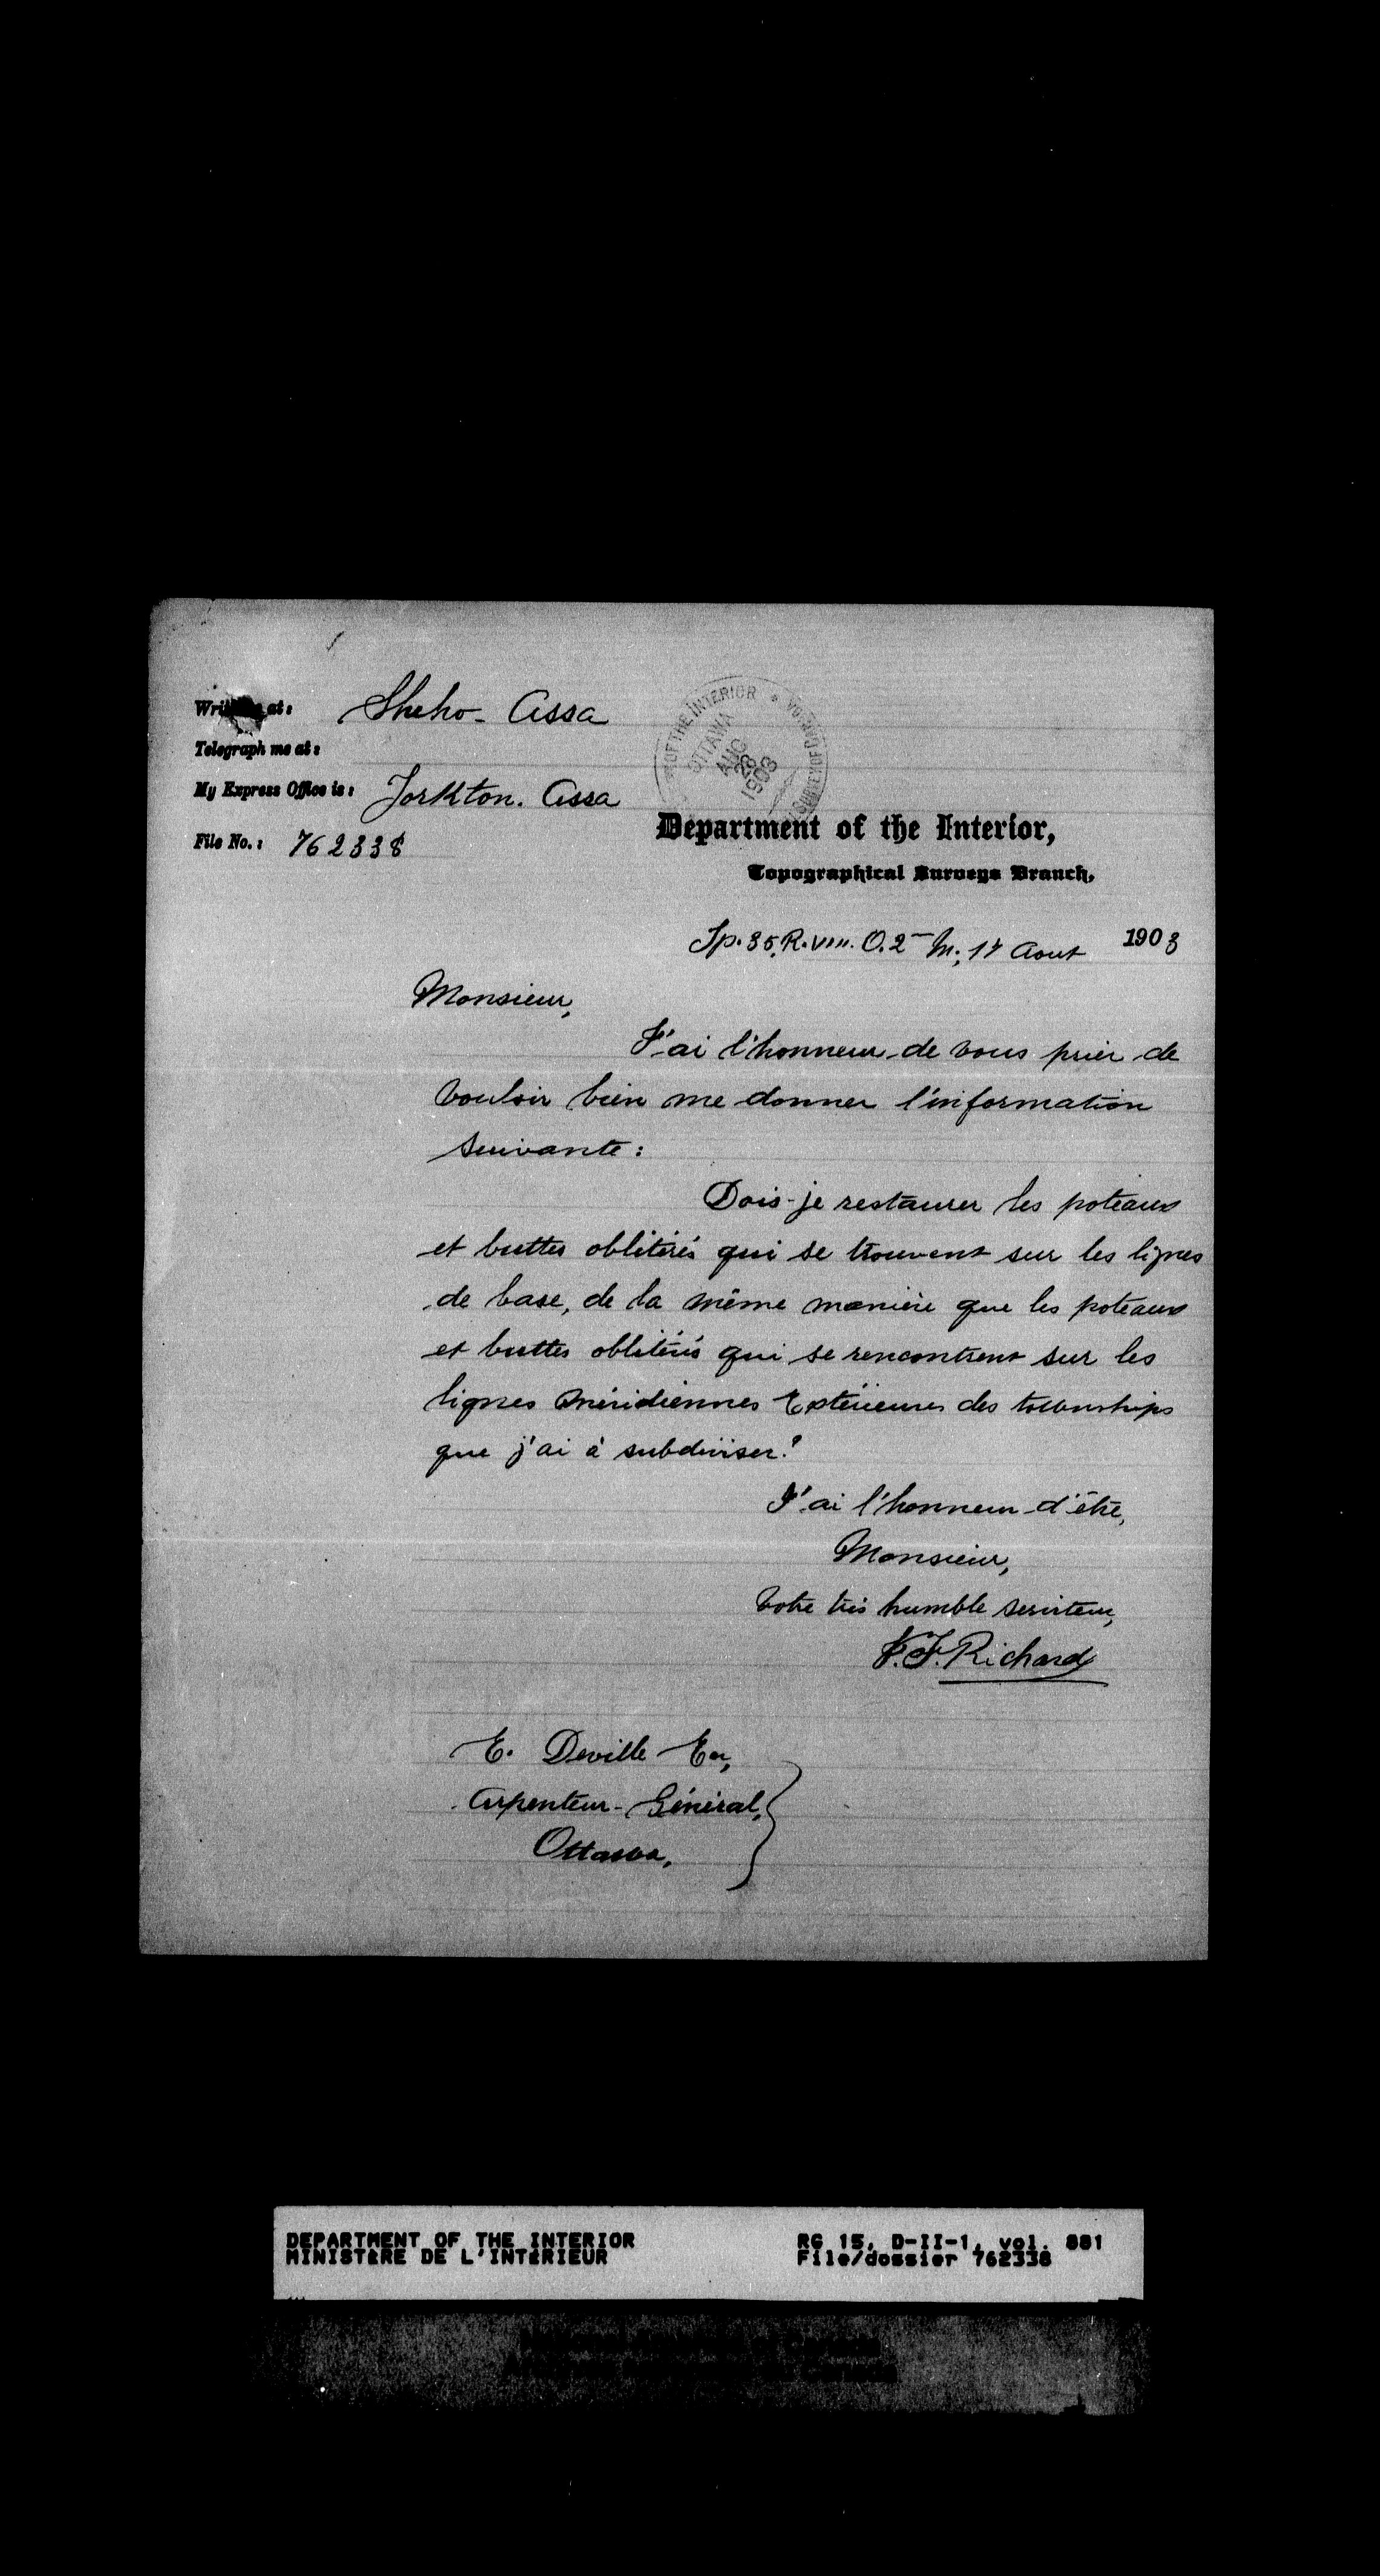 Writing at: Sheho - Assa
Telegraph me at:
My Express Office is: Yorkton. Assa
File No.: 762338
OF THE INTERIOR
OTTAWA
AUG
28
1903
Department of the Interior,
Topographical Surveys Branch,
Tp. 35, R. VIII. O. 2 M; 17 Aout 1903
Monsieur,
J'ai l'honneur de vous prier de
vouloir bien me donner l'information
suivante :
Dois-je restaurer les poteaux
et buttes oblitérés qui se trouvent sur les lignes
de base, de la même manière que les poteaux
et buttes oblitérés qui se rencontrent sur les
lignes méridiennes Extérieures des townships
que j'ai à subdiviser ?
J'ai l'honneur d'être,
Monsieur,
Votre très humble serviteur,
J. F. Richard
E. Deville Ecr,
Arpenteur-Général,
Ottawa,
DEPARTMENT OF THE INTERIOR RG 15, D-II-1, vol. 881
MINISTÈRE DE L'INTÉRIEUR File/dossier 762338